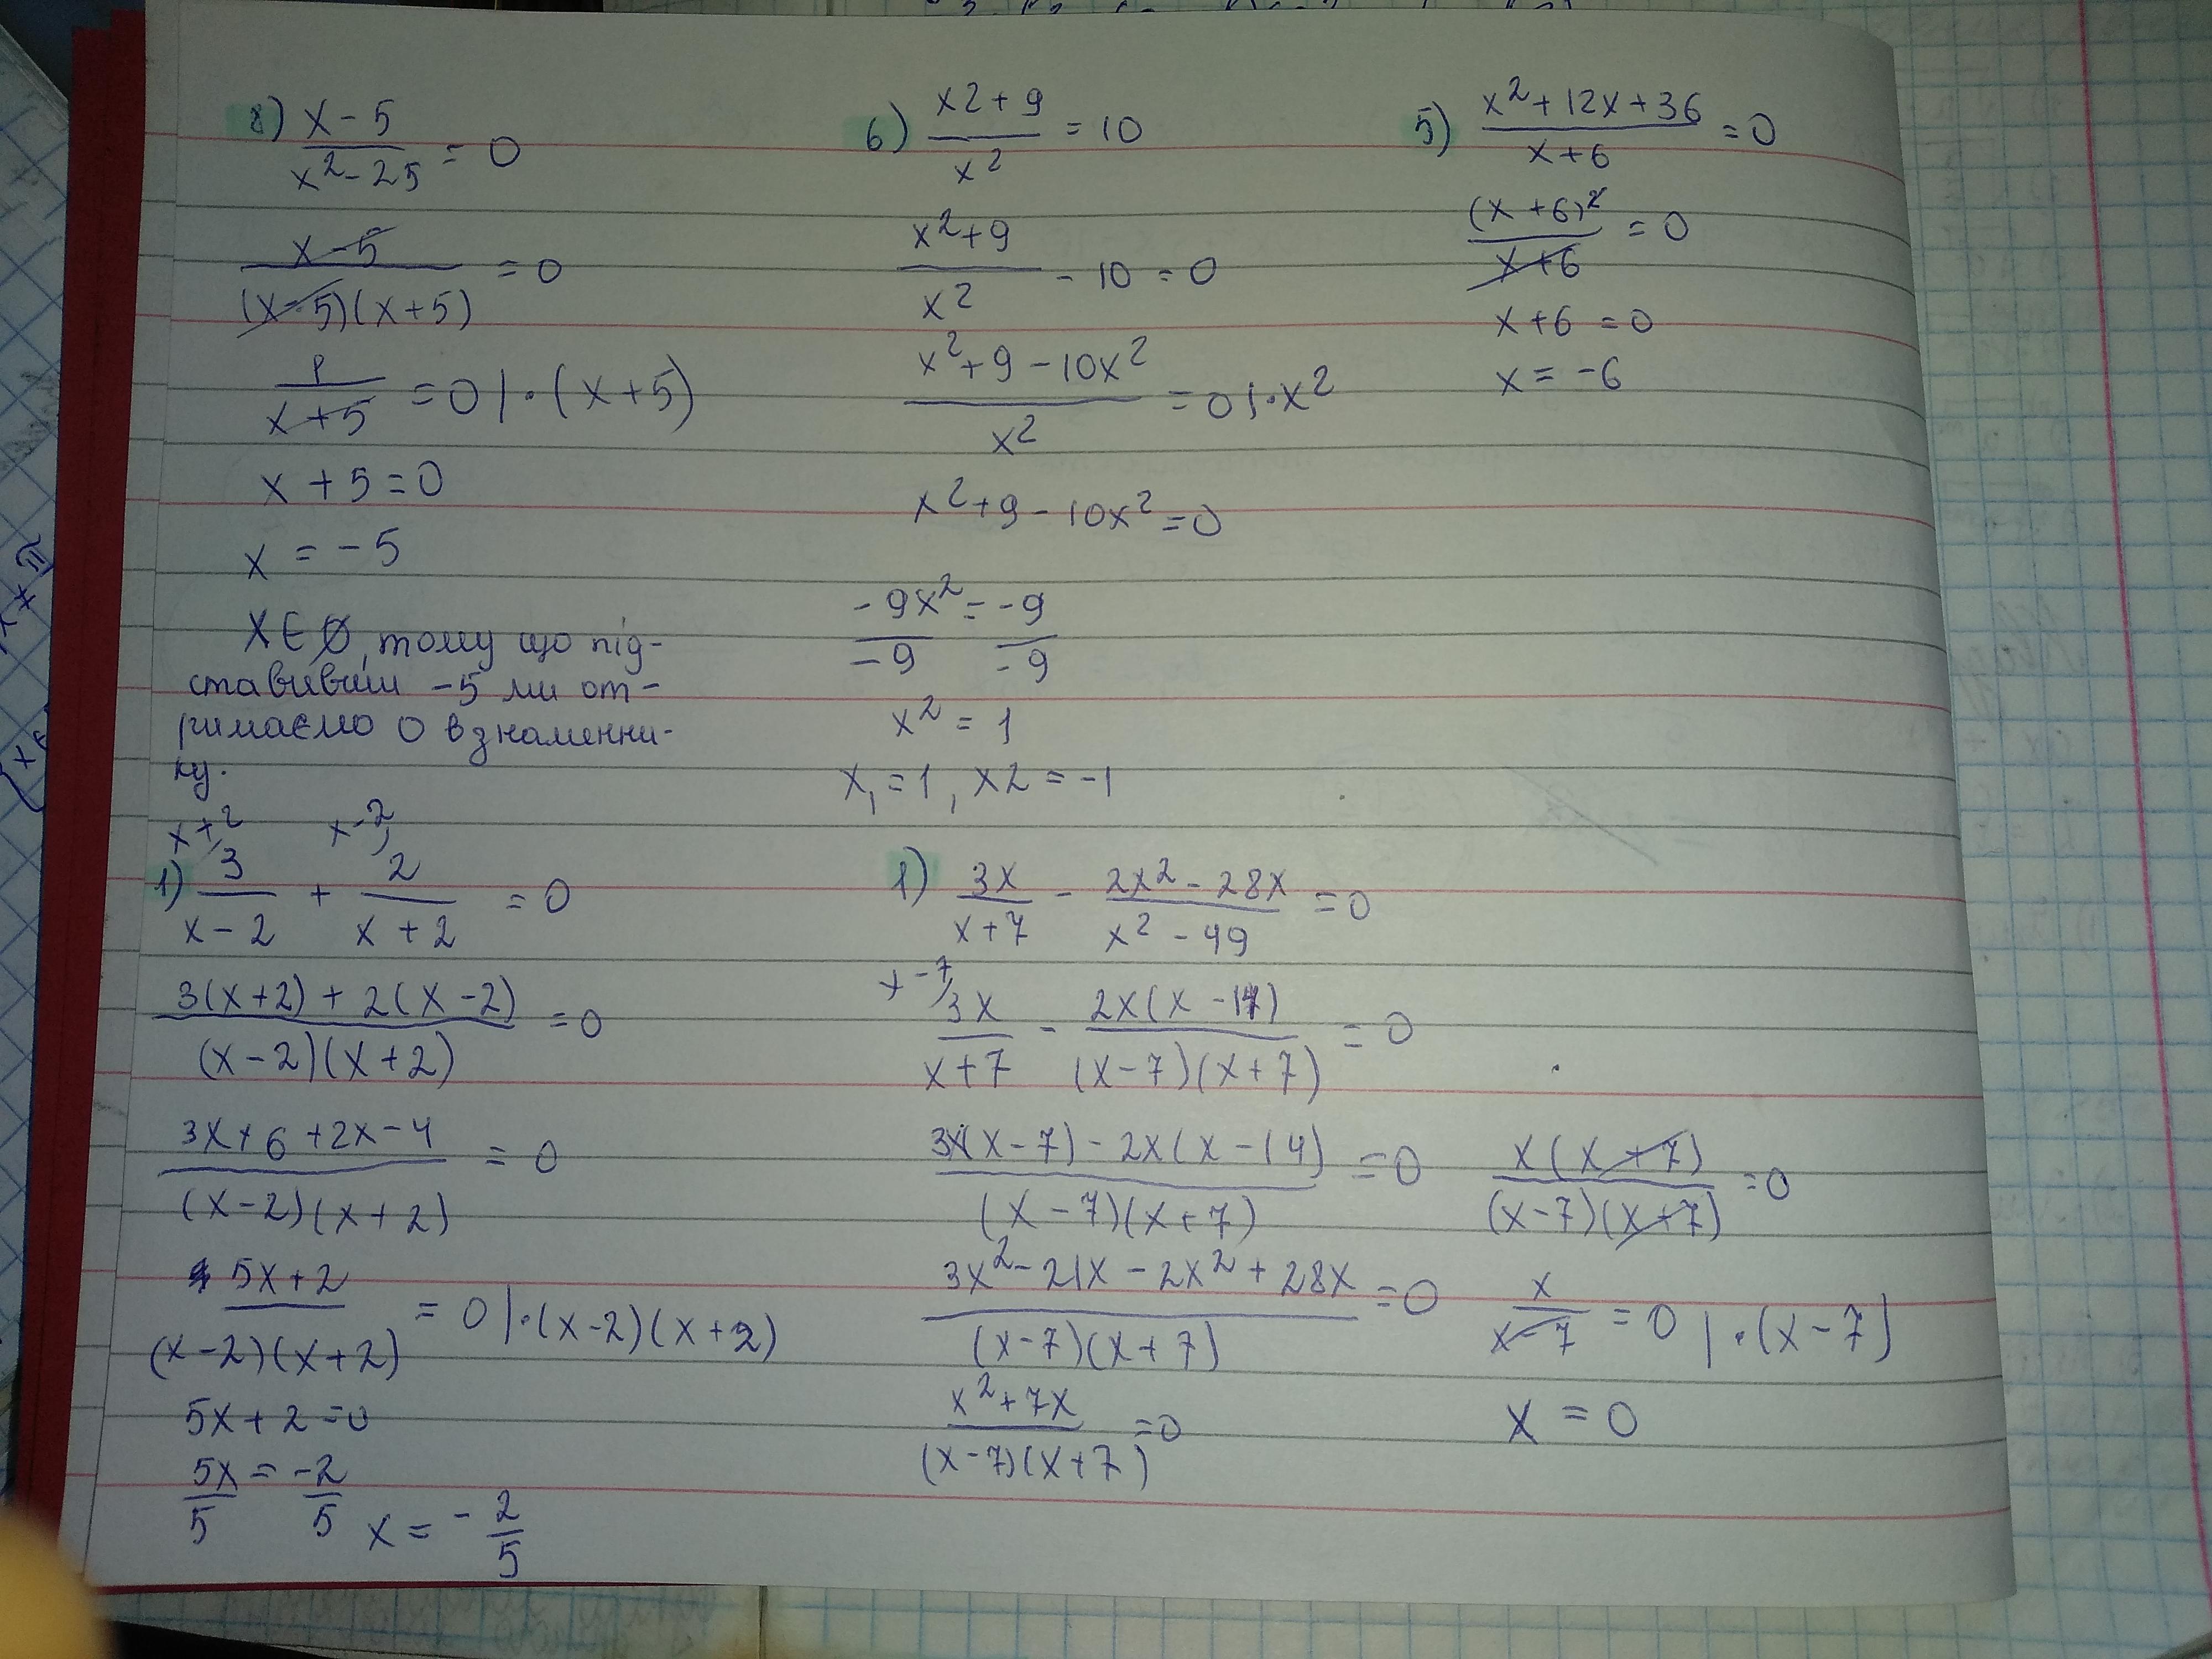 8) x-5 / x²-25 = 0
x-5 / (x-5)(x+5) = 0
1 / x+5 = 0 | · (x+5)
x + 5 = 0
x = -5
X ∈ Ø, тому що під-
ставивши -5 ми от-
римаємо 0 в знаменни-
ку.
6) x2+9 / x² = 10
x²+9 / x² - 10 = 0
x²+9-10x² / x² = 0 | · x²
x²+9-10x² = 0
-9x² / -9 = -9 / -9
x² = 1
x₁ = 1, x2 = -1
5) x²+12x+36 / x+6 = 0
(x+6)² / x+6 = 0
x+6 = 0
x = -6
x+2 x-2
1) 3 / x-2 + 2 / x+2 = 0
3(x+2) + 2(x-2) / (x-2)(x+2) = 0
3x+6+2x-4 / (x-2)(x+2) = 0
5x+2 / (x-2)(x+2) = 0 | · (x-2)(x+2)
5x+2 = 0
5x / 5 = -2 / 5 x = - 2 / 5
1) 3x / x+7 - 2x²-28x / x²-49 = 0
x-7
3x / x+7 - 2x(x-14) / (x-7)(x+7) = 0
3x(x-7) - 2x(x-14) / (x-7)(x+7) = 0
3x²-21x-2x²+28x / (x-7)(x+7) = 0
x²+7x / (x-7)(x+7) = 0
x(x+7) / (x-7)(x+7) = 0
x / x-7 = 0 | · (x-7)
x = 0